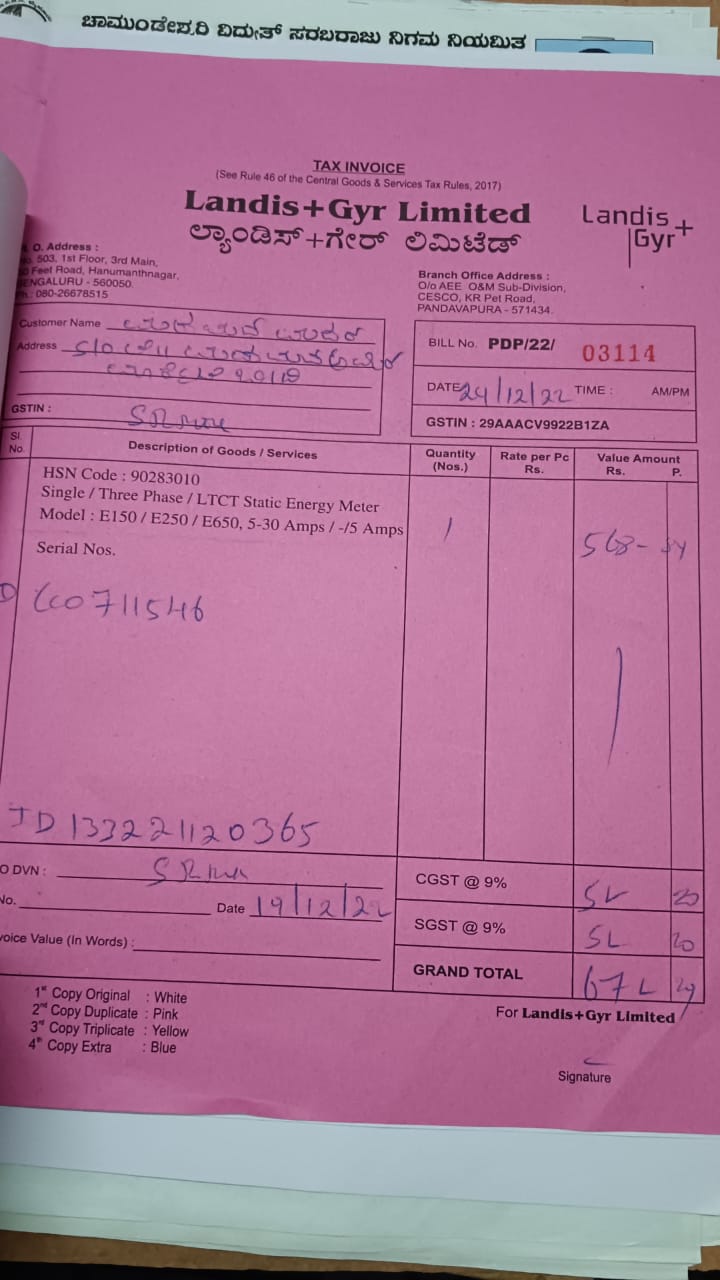 ಚಾಮುಂಡೇಶ್ವರಿ ವಿದ್ಯುತ್ ಸರಬರಾಜು ನಿಗಮ ನಿಯಮಿತ
TAX INVOICE
(See Rule 46 of the Central Goods & Services Tax Rules, 2017)
Landis+Gyr Limited
ಲ್ಯಾಂಡಿಸ್+ಗೇರ್ ಲಿಮಿಟೆಡ್
Landis+
Gyr
O. Address :
503, 1st Floor, 3rd Main,
Feet Road, Hanumanthnagar,
BENGALURU - 560050.
080-26678515
Branch Office Address :
O/o AEE O&M Sub-Division,
CESCO, KR Pet Road,
PANDAVAPURA - 571434.
Customer Name
Address
GSTIN :
BILL No. PDP/22/ 03114
DATE 24/12/22 TIME : AM/PM
GSTIN : 29AAACV9922B1ZA
Sl. No. Description of Goods / Services Quantity (Nos.) Rate per Pc Rs. Value Amount Rs. P.
HSN Code : 90283010
Single / Three Phase / LTCT Static Energy Meter
Model : E150 / E250 / E650, 5-30 Amps / -/5 Amps 1
Serial Nos.
133221120365
O DVN :
No. Date 19/12/22
voice Value (In Words) :
CGST @ 9%
SGST @ 9%
GRAND TOTAL
1st Copy Original : White
2nd Copy Duplicate : Pink
3rd Copy Triplicate : Yellow
4th Copy Extra : Blue
For Landis+Gyr Limited
Signature